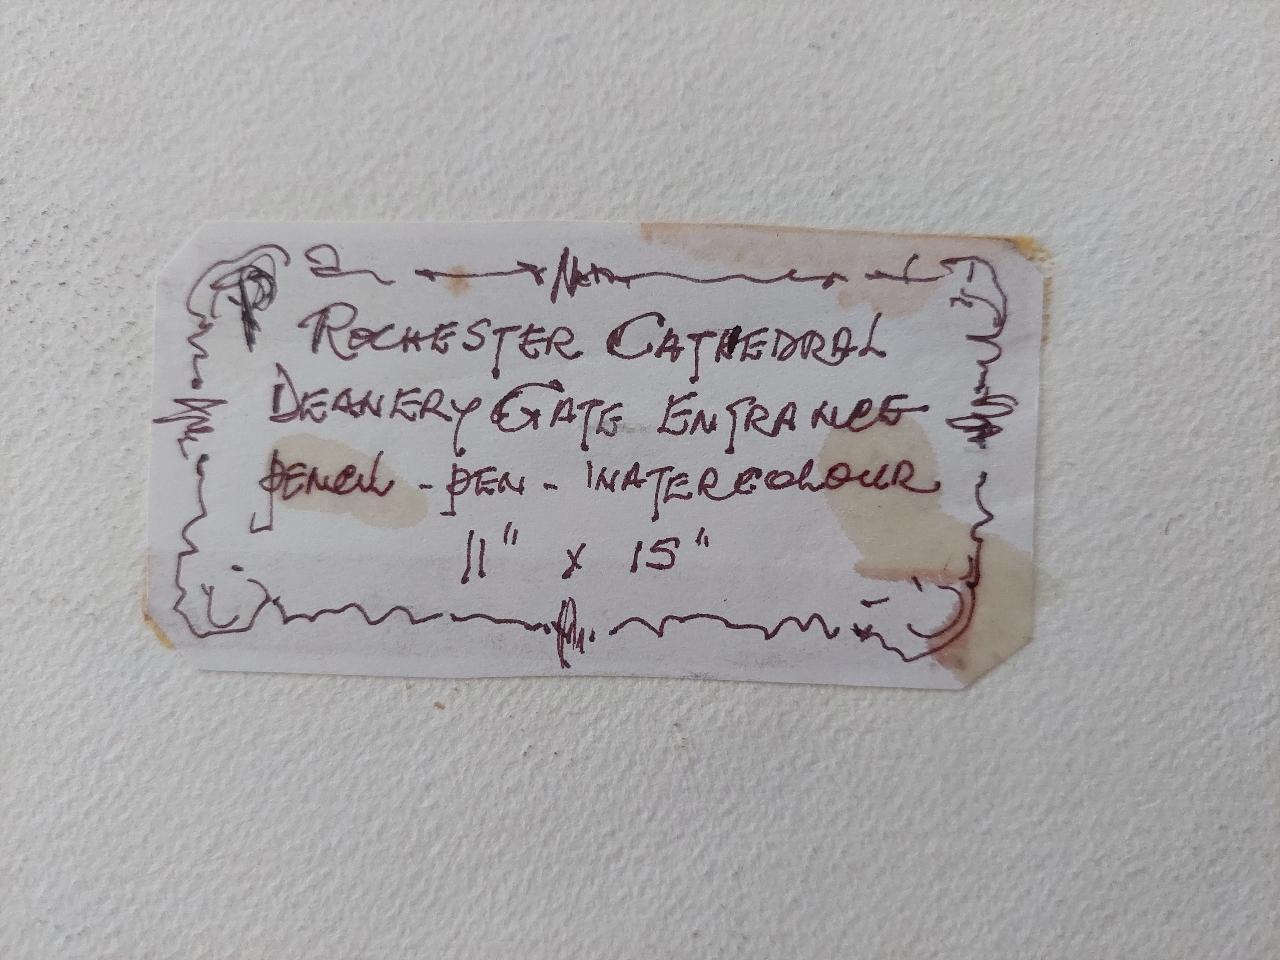 ROCHESTER CATHEDRAL
DEANERY GATE ENTRANCE
PENCIL - PEN - WATERCOLOUR
11" x 15"